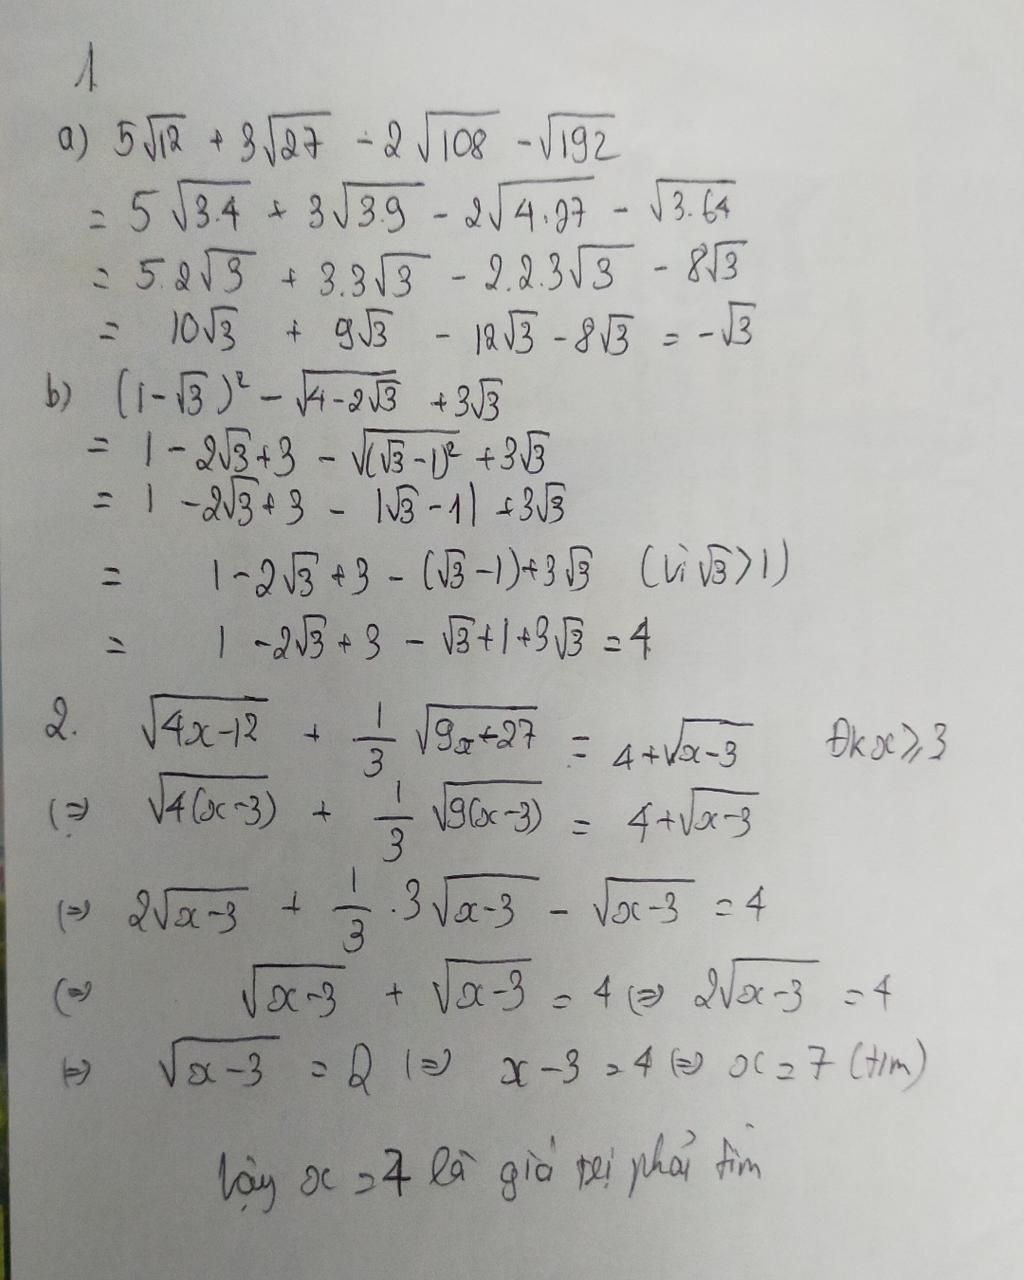 1
a) 5√12 + 3√27 - 2√108 - √192
= 5√3.4 + 3√3.9 - 2√4.27 - √3.64
= 5.2√3 + 3.3√3 - 2.2.3√3 - 8√3
= 10√3 + 9√3 - 12√3 - 8√3 = -√3
b) (1-√3)² - √4-2√3 + 3√3
= 1 - 2√3 + 3 - √(√3-1)² + 3√3
= 1 - 2√3 + 3 - |√3-1| + 3√3
= 1 - 2√3 + 3 - (√3-1) + 3√3 (vì √3>1)
= 1 - 2√3 + 3 - √3 + 1 + 3√3 = 4
2. √4x-12 + 1/3 √9x+27 = 4+√x-3 Đk x⩾3
(=) √4(x-3) + 1/3 √9(x-3) = 4+√x-3
(=) 2√x-3 + 1/3 .3√x-3 - √x-3 = 4
(=) √x-3 + √x-3 = 4 (=) 2√x-3 = 4
(=) √x-3 = 2 (=) x-3 = 4 (=) x = 7 (t/m)
Vậy x = 7 là giá trị phải tìm